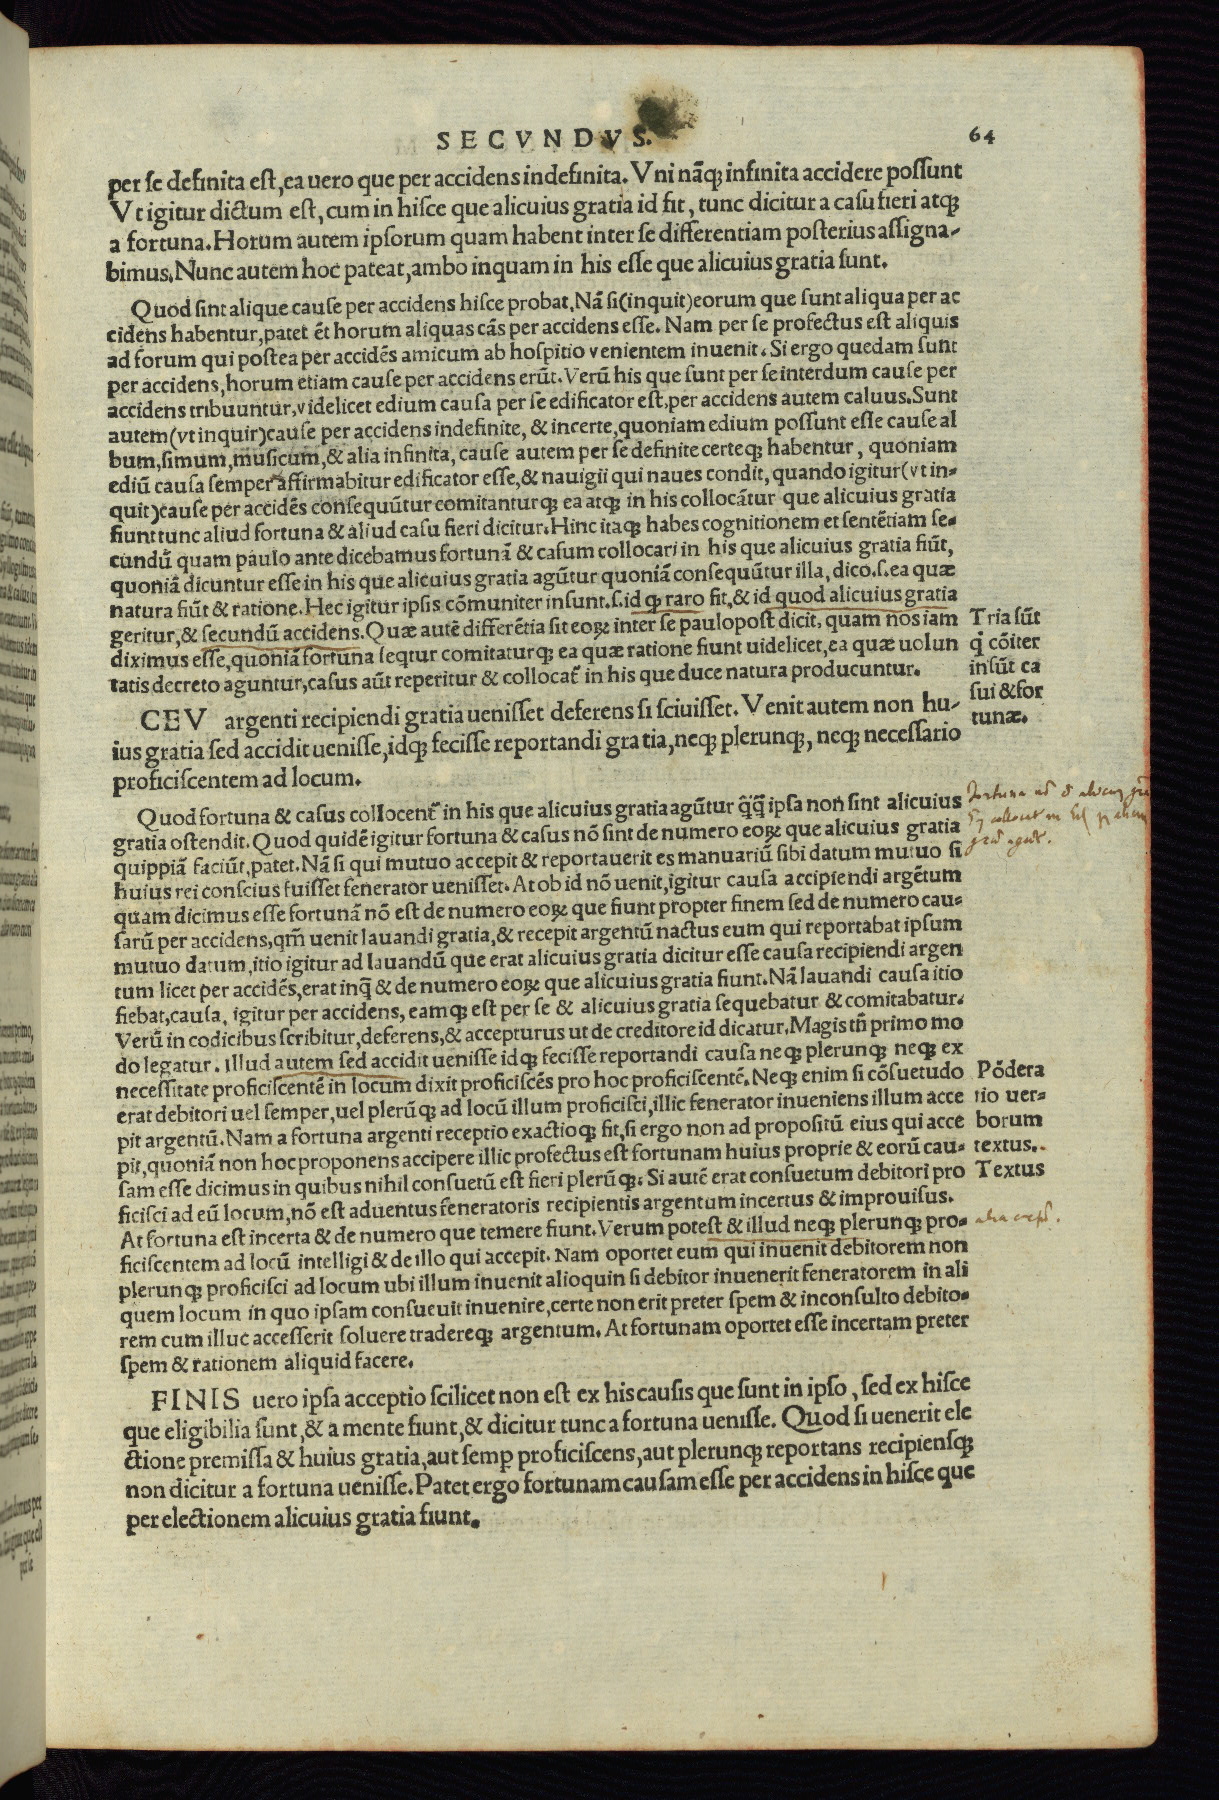 SECVNDVS. 64
per se definita est, ea uero que per accidens indefinita. Vni nãq; infinita accidere possunt
Vt igitur dictum est, cum in hisce que alicuius gratia id fit, tunc dicitur a casu fieri atq;
a fortuna. Horum autem ipsorum quam habent inter se differentiam posterius assigna-
bimus. Nunc autem hoc pateat, ambo inquam in his esse que alicuius gratia sunt.
Quod sint alique cause per accidens hisce probat, Nã si (inquit) eorum que sunt aliqua per ac
cidens habentur, patet ẽt horum aliquas cãs per accidens esse. Nam per se profectus est aliquis
ad forum qui postea per accidẽs amicum ab hospitio venientem inuenit. Si ergo quedam sunt
per accidens, horum etiam cause per accidens erũt. Verũ his que sunt per se interdum cause per
accidens tribuuntur, videlicet edium causa per se edificator est, per accidens autem caluus. Sunt
autem (vt inquir) cause per accidens indefinite, & incerte, quoniam edium possunt esse cause al
bum, simum, musicum, & alia infinita, cause autem per se definite certeq; habentur, quoniam
ediũ causa semper affirmabitur edificator esse, & nauigii qui naues condit, quando igitur (vt in-
quit) cause per accidẽs consequũtur comitanturq; ea atq; in his collocãtur que alicuius gratia
fiunt tunc aliud fortuna & aliud casu fieri dicitur. Hinc itaq; habes cognitionem et sentẽtiam se-
cundũ quam paulo ante dicebamus fortunã & casum collocari in his que alicuius gratia fiũt,
quoniã dicuntur esse in his que alicuius gratia agũtur quoniã consequũtur illa, dico. s. ea quæ
natura fiũt & ratione. Hec igitur ipsis cõmuniter insunt. s. id qɔ raro fit, & id quod alicuius gratia
geritur, & secundũ accidens. Quæ autẽ differẽtia sit eoꝝ inter se paulopost dicit, quam nos iam
diximus esse, quoniã fortuna seqtur comitaturq; ea quæ ratione fiunt uidelicet, ea quæ uolun
tatis decreto aguntur, casus aũt reperitur & collocat̃ in his que duce natura producuntur.
Tria sũt
q̃ cõiter
insũt ca
sui & for
tunæ.
CEV argenti recipiendi gratia uenisset deferens si sciuisset. Venit autem non hu-
ius gratia sed accidit uenisse, idq; fecisse reportandi gratia, neq; plerunq;, neq; necessario
proficiscentem ad locum.
Quod fortuna & casus collocent̃ in his que alicuius gratia agũtur q̃q̃ ipsa non sint alicuius
gratia ostendit. Quod quidẽ igitur fortuna & casus nõ sint de numero eoꝝ que alicuius gratia
quippiã faciũt, patet. Nã si qui mutuo accepit & reportauerit es manuariũ sibi datum mutuo si
huius rei conscius fuisset fenerator uenisset. At ob id nõ uenit, igitur causa accipiendi argẽtum
quam dicimus esse fortunã nõ est de numero eoꝝ que fiunt propter finem sed de numero cau-
sarũ per accidens, qm̃ uenit lauandi gratia, & recepit argentũ nactus eum qui reportabat ipsum
mutuo datum, itio igitur ad lauandũ que erat alicuius gratia dicitur esse causa recipiendi argen
tum licet per accidẽs, erat inq̃ & de numero eoꝝ que alicuius gratia fiunt. Nã lauandi causa itio
fiebat, causa, igitur per accidens, eamq; est per se & alicuius gratia sequebatur & comitabatur.
Verũ in codicibus scribitur, deferens, & accepturus ut de creditore id dicatur. Magis tñ primo mo
do legatur. Illud autem sed accidit uenisse idq; fecisse reportandi causa neq; plerunq; neq; ex
necessitate proficiscentẽ in locum dixit proficiscẽs pro hoc proficiscentẽ. Neq; enim si cõsuetudo
erat debitori uel semper, uel plerũq; ad locũ illum proficisci, illic fenerator inueniens illum acce
pit argentũ. Nam a fortuna argenti receptio exactioq; fit, si ergo non ad propositũ eius qui acce
pit, quoniã non hoc proponens accipere illic profectus est fortunam huius proprie & eorũ cau-
sam esse dicimus in quibus nihil consuetũ est fieri plerũq;. Si autẽ erat consuetum debitori pro
ficisci ad eũ locum, nõ est aduentus feneratoris recipientis argentum incertus & improuisus.
At fortuna est incerta & de numero que temere fiunt. Verum potest & illud neq; plerunq; pro-
ficiscentem ad locũ intelligi & de illo qui accepit. Nam oportet eum qui inuenit debitorem non
plerunq; proficisci ad locum ubi illum inuenit alioquin si debitor inuenerit feneratorem in ali
quem locum in quo ipsam consueuit inuenire, certe non erit preter spem & inconsulto debito-
rem cum illuc accesserit soluere tradereq; argentum. At fortunam oportet esse incertam preter
spem & rationem aliquid facere.
Põdera
tio uer-
borum
textus.
Textus
FINIS uero ipsa acceptio scilicet non est ex his causis que sunt in ipso, sed ex hisce
que eligibilia sunt, & a mente fiunt, & dicitur tunc a fortuna uenisse. Quod si uenerit ele
ctione premissa & huius gratia, aut semp proficiscens, aut plerunq; reportans recipiensq;
non dicitur a fortuna uenisse. Patet ergo fortunam causam esse per accidens in hisce que
per electionem alicuius gratia fiunt.